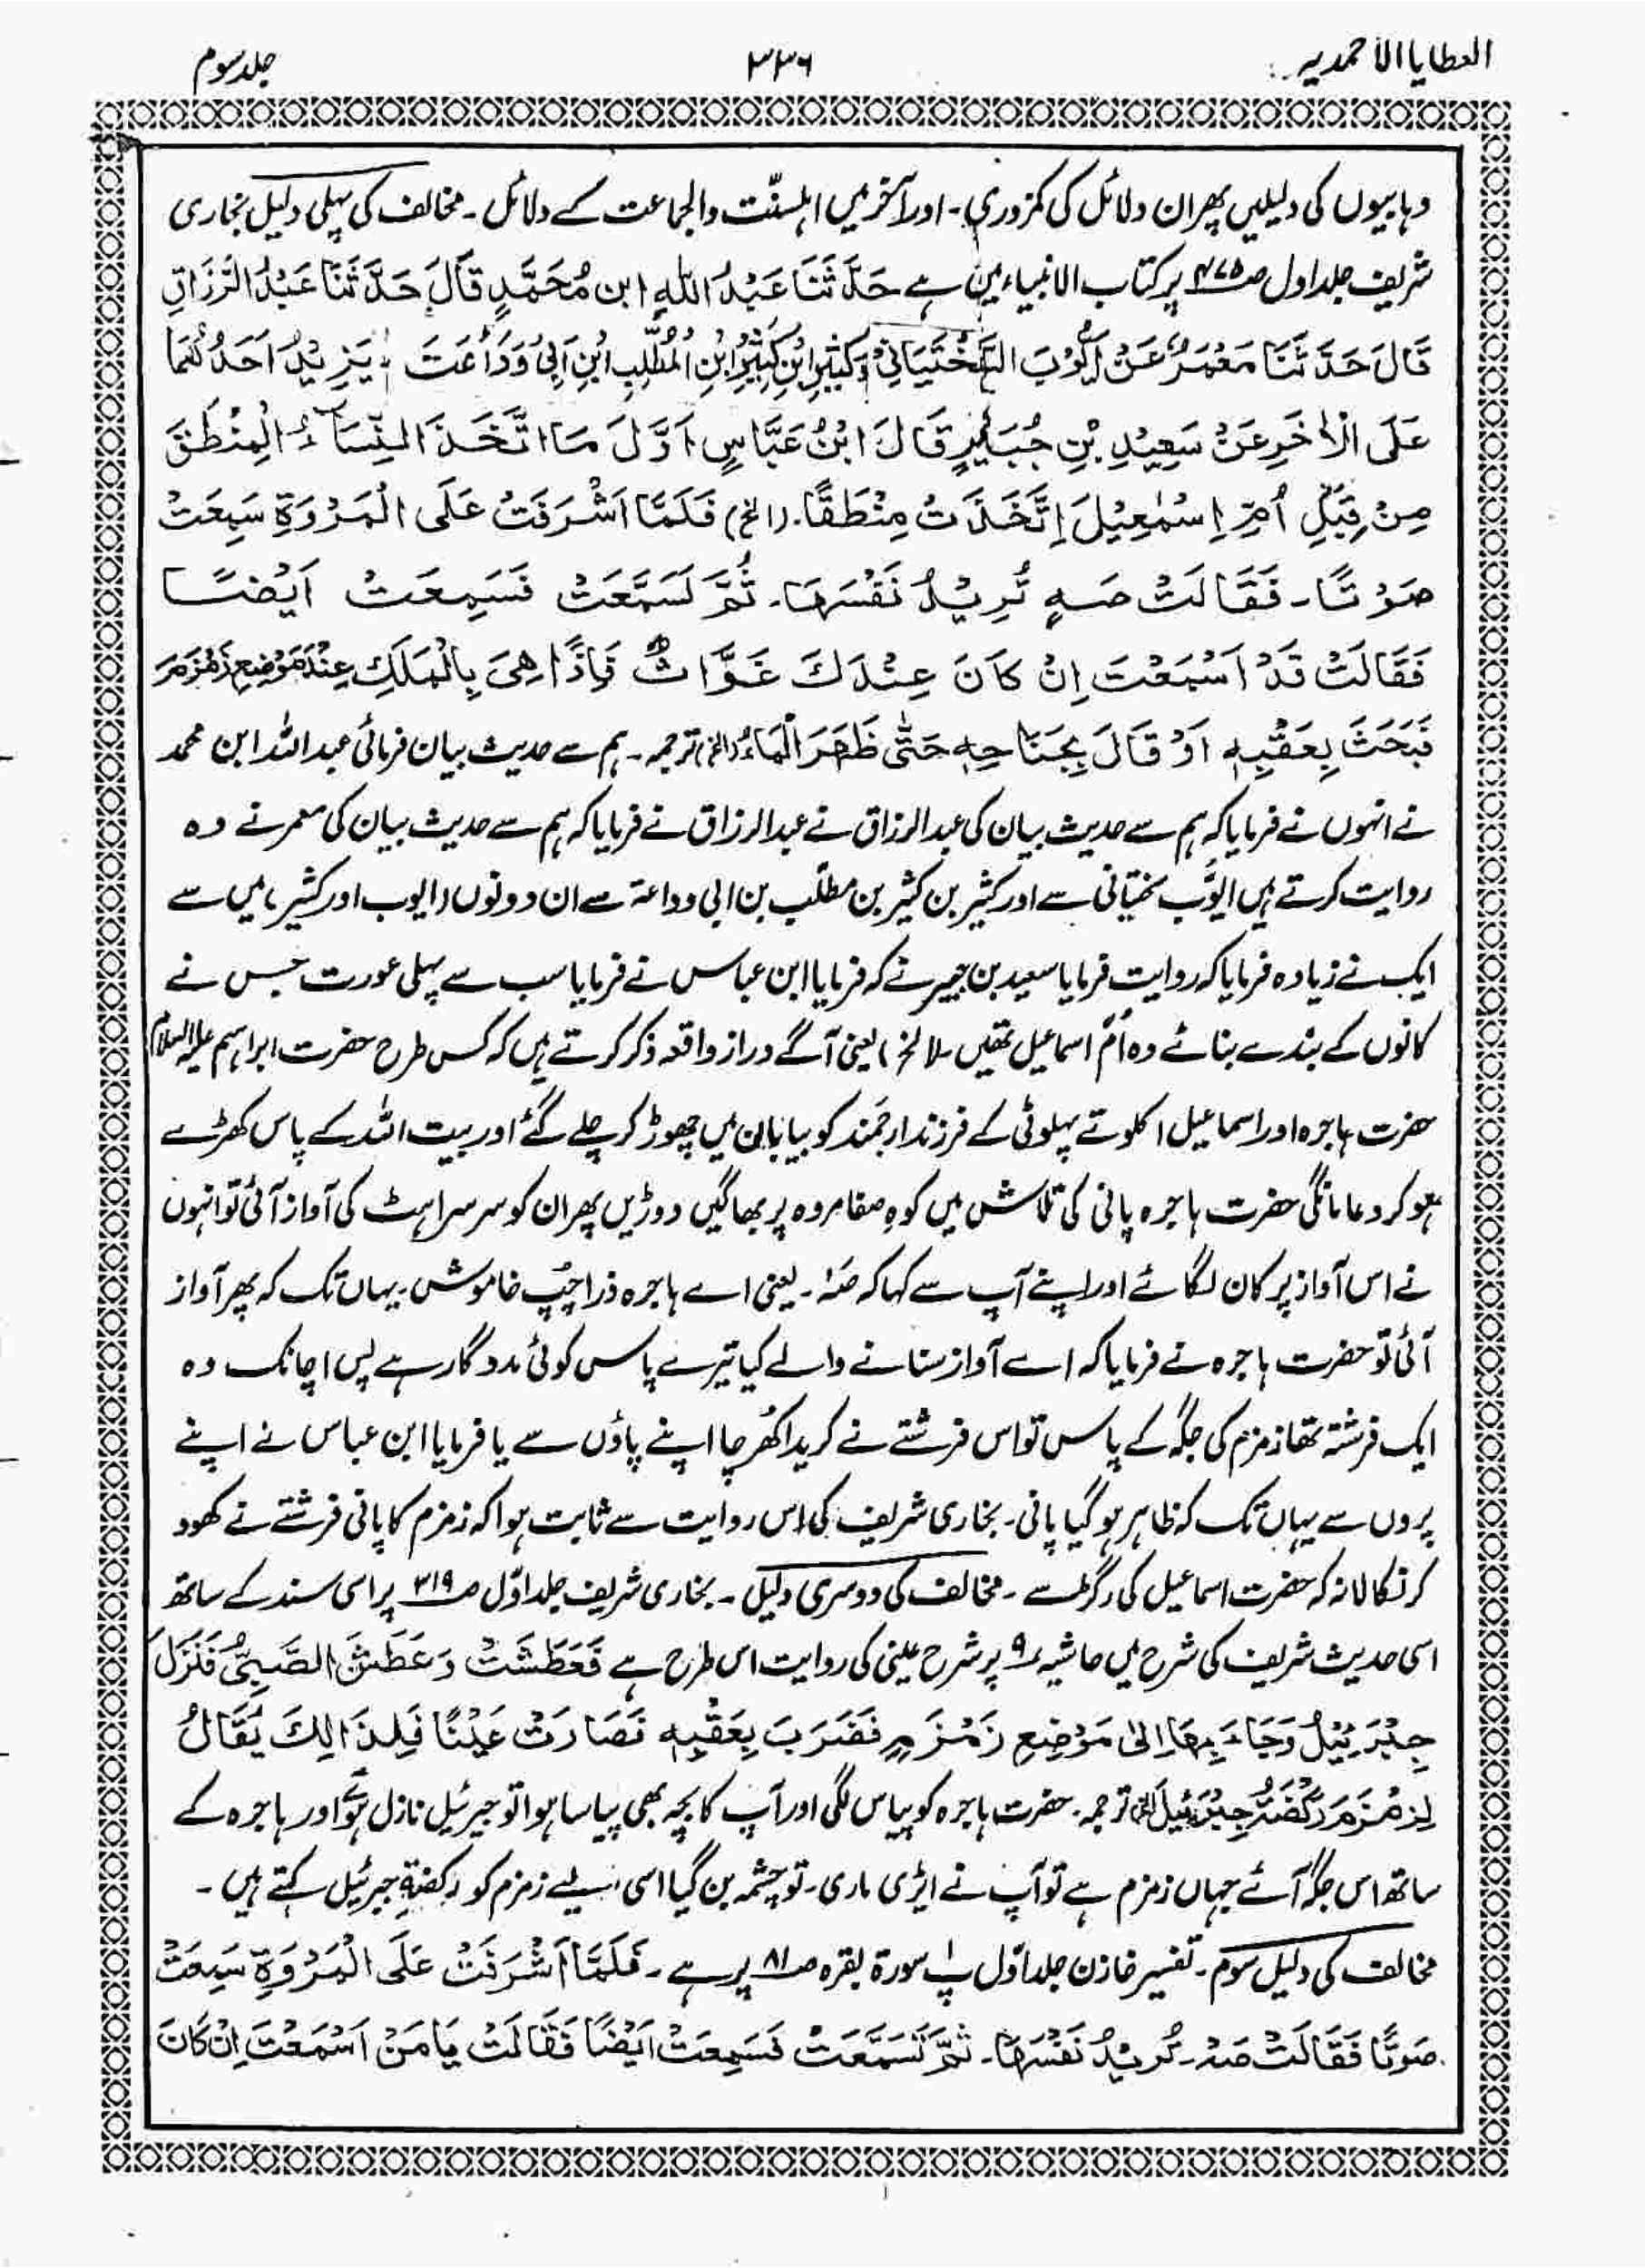 العطایا الاحمدیہ
۳۳۶
جلد سوم
وہابیوں کی دلیلیں پھر ان دلائل کی کمزوری۔ اور آخر میں اہلسنّت والجماعت کے دلائل۔ مخالف کی پہلی دلیل بخاری
شریف جلد اول صـ۴۷۵ پر کتاب الانبیاء میں ہے حَدَّثَنَا عَبْدُ اللّٰہِ ابن مُحَمَّدٍ قَالَ حَدَّثَنَا عَبْدُ الرَّزَاقِ
قَالَ حَدَّثَنَا مَعْمَرٌ عَنْ اَیُّوْبَ السَّخْتَیَانِیْ وَکَثِیْرِ ابْنِ کَثِیْرِ ابْنِ الْمُطَّلِبِ ابْنِ اَبِیْ وَدَاْعَتَ یَزِیْدُ اَحَدُھُمَا
عَلَی الْاٰخَرِ عَنْ سَعِیْدِ بْنِ جُبَیْرٍ قَالَ ابْنُ عَبَّاسٍ اَوَّلَ مَا اتَّخَذَ النِّسَآءُ الْمِنْطَقَ
مِنْ قِبَلِ اُمِّ اِسْمٰعِیْلَ اِتَّخَذَتْ مِنْطَقًا۔ (الخ) فَلَمَّا اَشْرَفَتْ عَلَی الْمَرْوَۃِ سَمِعَتْ
صَوْتًا۔ فَقَالَتْ صَہٍ تُرِیْدُ نَفْسَہَا۔ ثُمَّ تَسَمَّعَتْ فَسَمِعَتْ اَیْضًا
فَقَالَتْ قَدْ اَسْمَعْتَ اِنْ کَانَ عِنْدَكَ غَوَّاثٌ فَاِذَا ھِیَ بِالْمَلَكِ عِنْدَ مَوْضِعِ زَمْزَمَ
فَبَحَثَ بِعَقْبِہٖ اَوْ قَالَ بِجَنَاحِہٖ حَتّٰی ظَھَرَ الْمَاءُ (الخ) ترجمہ۔ ہم سے حدیث بیان فرمائی عبداللہ ابن محمد
نے انہوں نے فرمایا کہ ہم سے حدیث بیان کی عبدالرزاق نے عبدالرزاق نے فرمایا کہ ہم سے حدیث بیان کی معمر نے وہ
روایت کرتے ہیں ایوّب سختیانی سے اور کثیر بن کثیر بن مطلّب بن ابی وداعۃ سے ان دونوں (ایوب اور کثیر) میں سے
ایک نے زیادہ فرمایا کہ روایت فرمایا سعید بن جبیر نے کہ فرمایا ابن عباس نے فرمایا سب سے پہلی عورت جس نے
کانوں کے بندے بنائے وہ اُمّ اسماعیل تھیں۔ (الخ) یعنی آگے دراز واقعہ ذکر کرتے ہیں کہ کس طرح حضرت ابراہیم علیہ السلام
حضرت ہاجرہ اور اسماعیل اکلوتے پہلوٹی کے فرزند ارجمند کو بیابان میں چھوڑ کر چلے گئے اور بیت اللہ کے پاس کھڑے
ہو کر دعا مانگی حضرت ہاجرہ پانی کی تلاش میں کوہِ صفا مروہ پر بھاگیں دوڑیں پھر ان کو سرسراہٹ کی آواز آئی تو انہوں
نے اس آواز پر کان لگائے اور اپنے آپ سے کہا کہ صَہْ۔ یعنی اے ہاجرہ ذرا چپ خاموش۔ یہاں تک کہ پھر آواز
آئی تو حضرت ہاجرہ نے فرمایا کہ اے آواز سنانے والے کیا تیرے پاس کوئی مددگار ہے پس اچانک وہ
ایک فرشتہ تھا زمزم کی جگہ کے پاس تو اس فرشتے نے کریدا کھُرچا اپنے پاؤں سے یا فرمایا ابن عباس نے اپنے
پروں سے یہاں تک کہ ظاہر ہو گیا پانی۔ بخاری شریف کی اس روایت سے ثابت ہوا کہ زمزم کا پانی فرشتے نے کھود
کر نکالا نہ کہ حضرت اسماعیل کی رگڑ سے۔ مخالف کی دوسری دلیل۔ بخاری شریف جلد اوّل صـ۳۱۹ پر اسی سند کے ساتھ
اسی حدیث شریف کی شرح میں حاشیہ ۹ پر شرح عینی کی روایت اس طرح ہے فَعَطَشَتْ وَعَطَشَ الصَّبِیُّ فَنَزَلَ
جِبْرَئِیْلُ وَجَاءَ بِھَا اِلیٰ مَوْضِعِ زَمْزَمٍ فَضَرَبَ بِعَقْبِہٖ فَصَارَتْ عَیْنًا فَلِذَالِكَ یُقَالُ
لِزَمْزَمَ رَکْضَۃُ جِبْرَئِیْلَ الخ ترجمہ۔ حضرت ہاجرہ کو پیاس لگی اور آپ کا بچہ بھی پیاسا ہوا تو جبرئیل نازل ہوئے اور ہاجرہ کے
ساتھ اس جگہ آئے جہاں زمزم ہے تو آپ نے ایڑی ماری۔ تو چشمہ بن گیا اسی لیے زمزم کو رکضۃِ جبرئیل کہتے ہیں۔
مخالف کی دلیل سوم۔ تفسیر خازن جلد اوّل پ۱ سورۃ بقرہ صـ۸۱ پر ہے۔ فَلَمَّا اَشْرَفَتْ عَلَی الْمَرْوَۃِ سَمِعَتْ
صَوتًا فَقَالَتْ صَہْ۔ تُرِیْدُ نَفْسَہَا۔ ثُمَّ تَسَمَّعَتْ فَسَمِعَتْ اَیْضًا فَقَالَتْ یَا مَنْ اَسْمَعْتَ اِنْ کَانَ